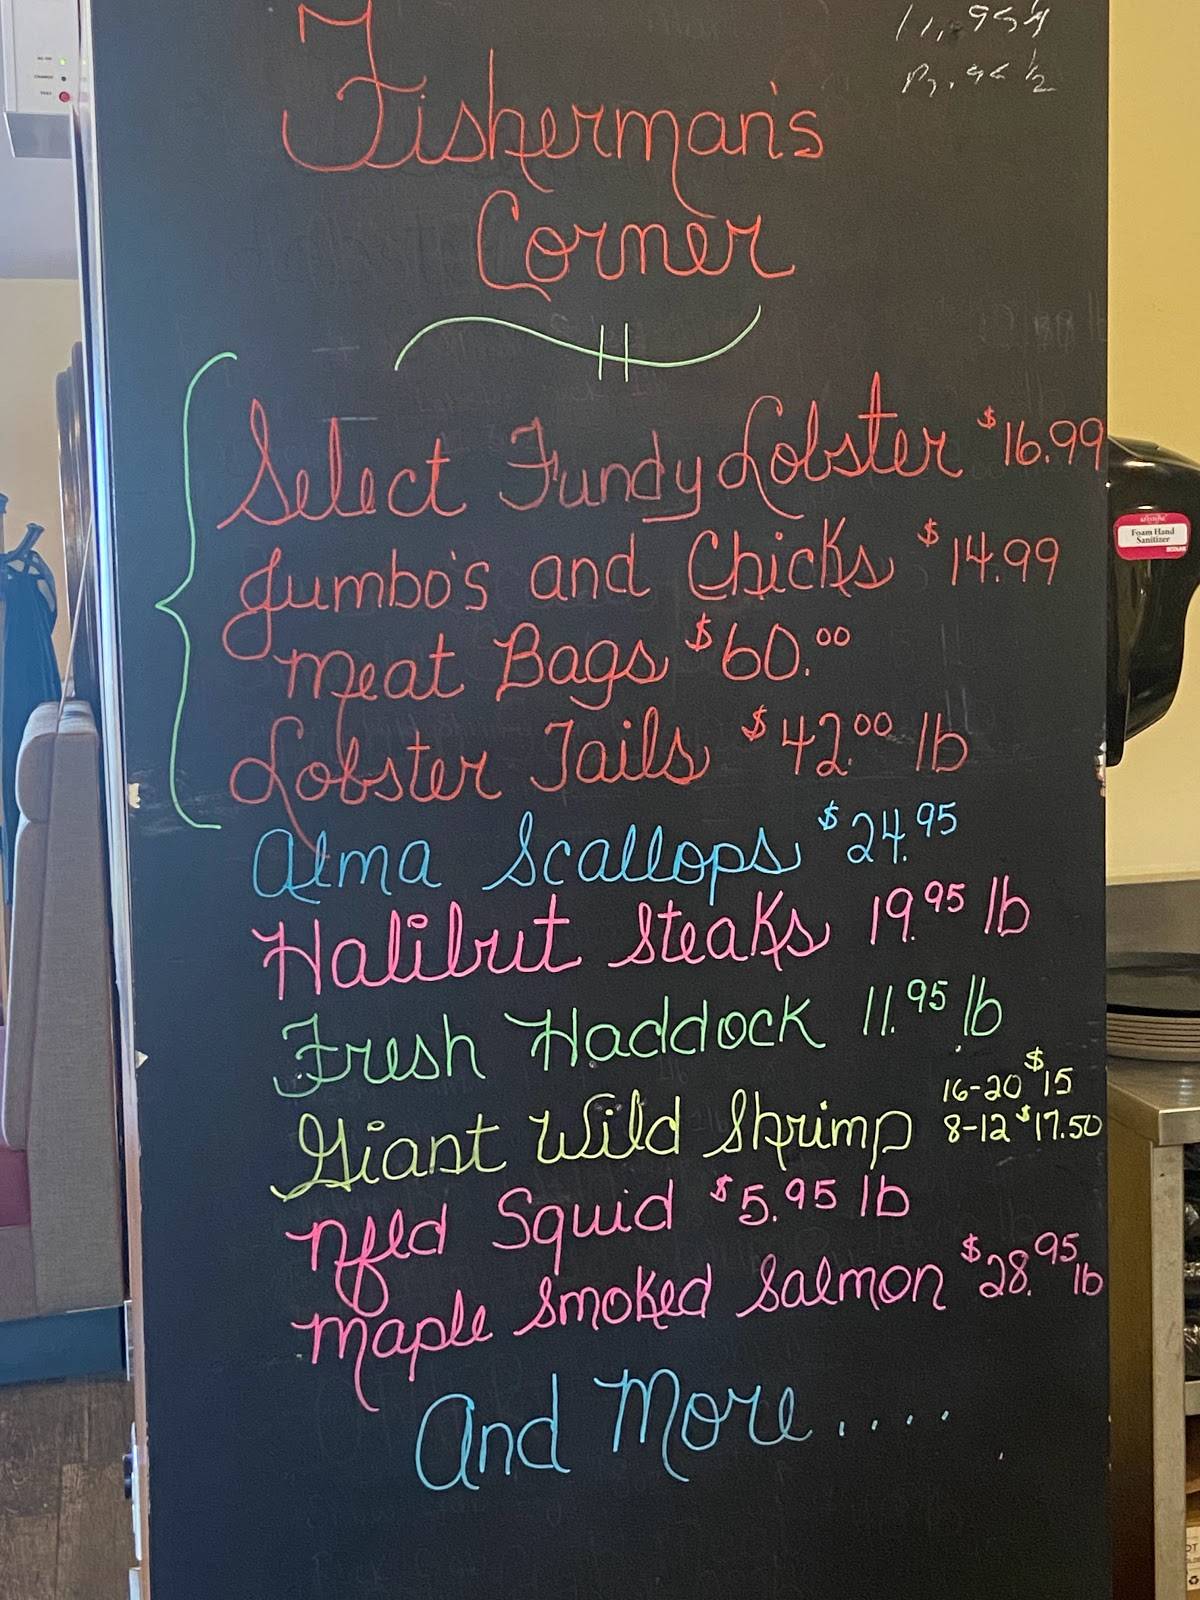 Fisherman's
Corner
Select Fundy Lobster $16.99
Jumbo's and Chicks $14.99
Meat Bags $60.00
Lobster Tails $42.00 lb
Alma Scallops $24.95
Halibut Steaks 19.95 lb
Fresh Haddock 11.95 lb
Giant Wild Shrimp 16-20 $15
8-12 $17.50
Nfld Squid $5.95 lb
Maple Smoked Salmon $28.95 lb
And More....
Foam Hand
Sanitizer